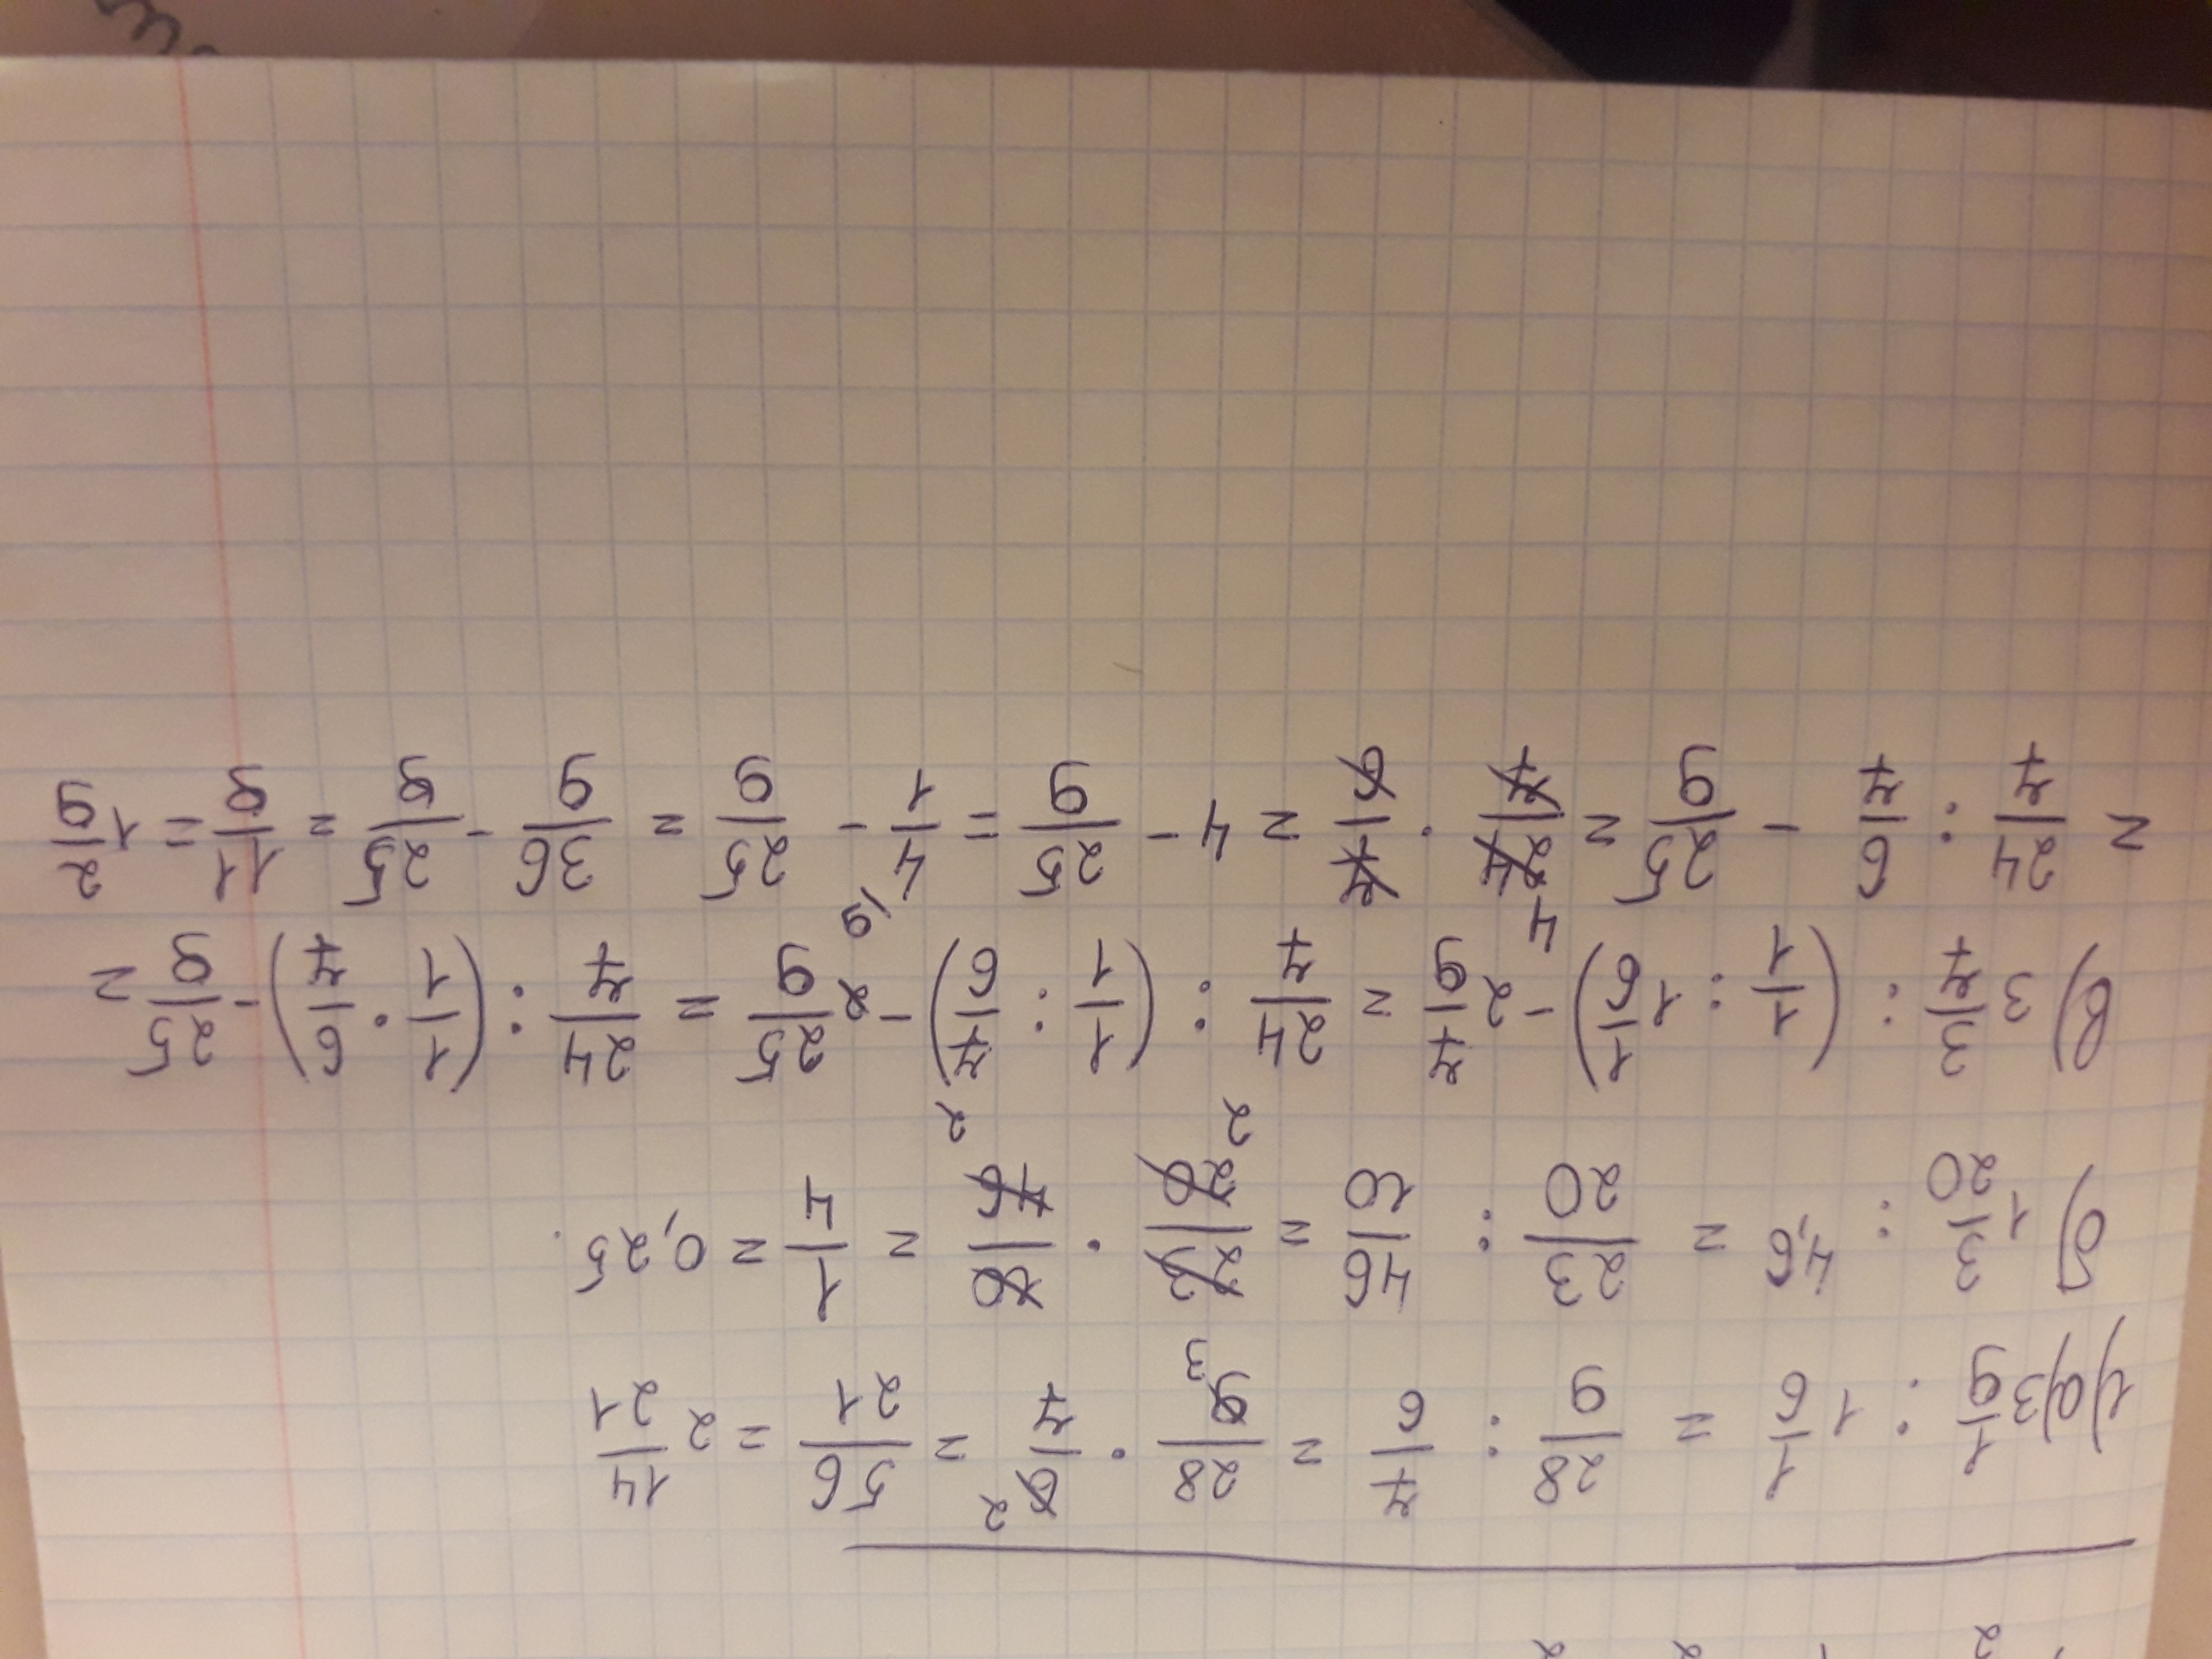 4) a) 3 1/9 : 1 1/6 = 28/9 : 7/6 = 28/9 · 6/7 = 56/21 = 2 14/21
б) 1 3/20 : 4,6 = 23/20 : 46/10 = 23/20 · 10/46 = 1/4 = 0,25.
в) 3 3/7 : (1/1 : 1 1/6) - 2 7/9 = 24/7 : (1/1 : 7/6) - 25/9 = 24/7 : (1/1 · 6/7) - 25/9 =
= 24/7 : 6/7 - 25/9 = 24/7 · 7/6 = 4 - 25/9 = 4/1 - 25/9 = 36/9 - 25/9 = 11/9 = 1 2/9